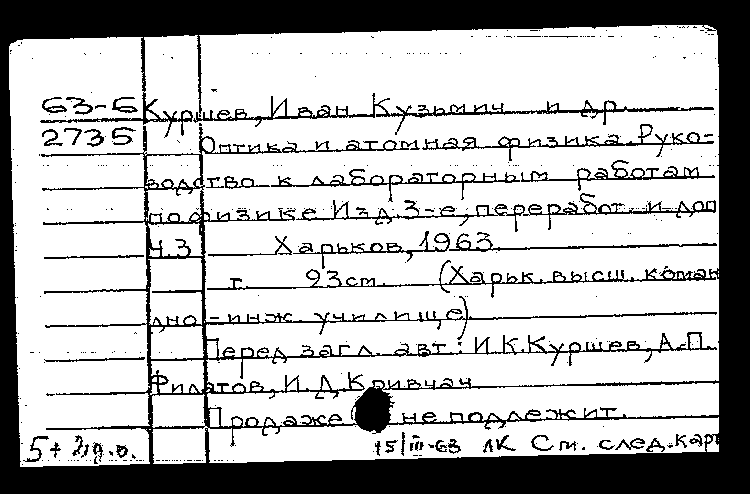 63-6 Куршев, Иван Кузьмич и др.
2735 Оптика и атомная физика. Руко-
водство к лабораторным работам
по физике Изд. 3-е, переработ. и доп
Ч.3 Харьков, 1963.
т. 23см. (Харьк. высш. коман
дно-инж. училище)
Перед загл. авт.: И.К.Куршев, А.П.
Филатов, И.Д.Кривчач
Продаже не подлежит.
15/III-63 ЛК См. след. карт